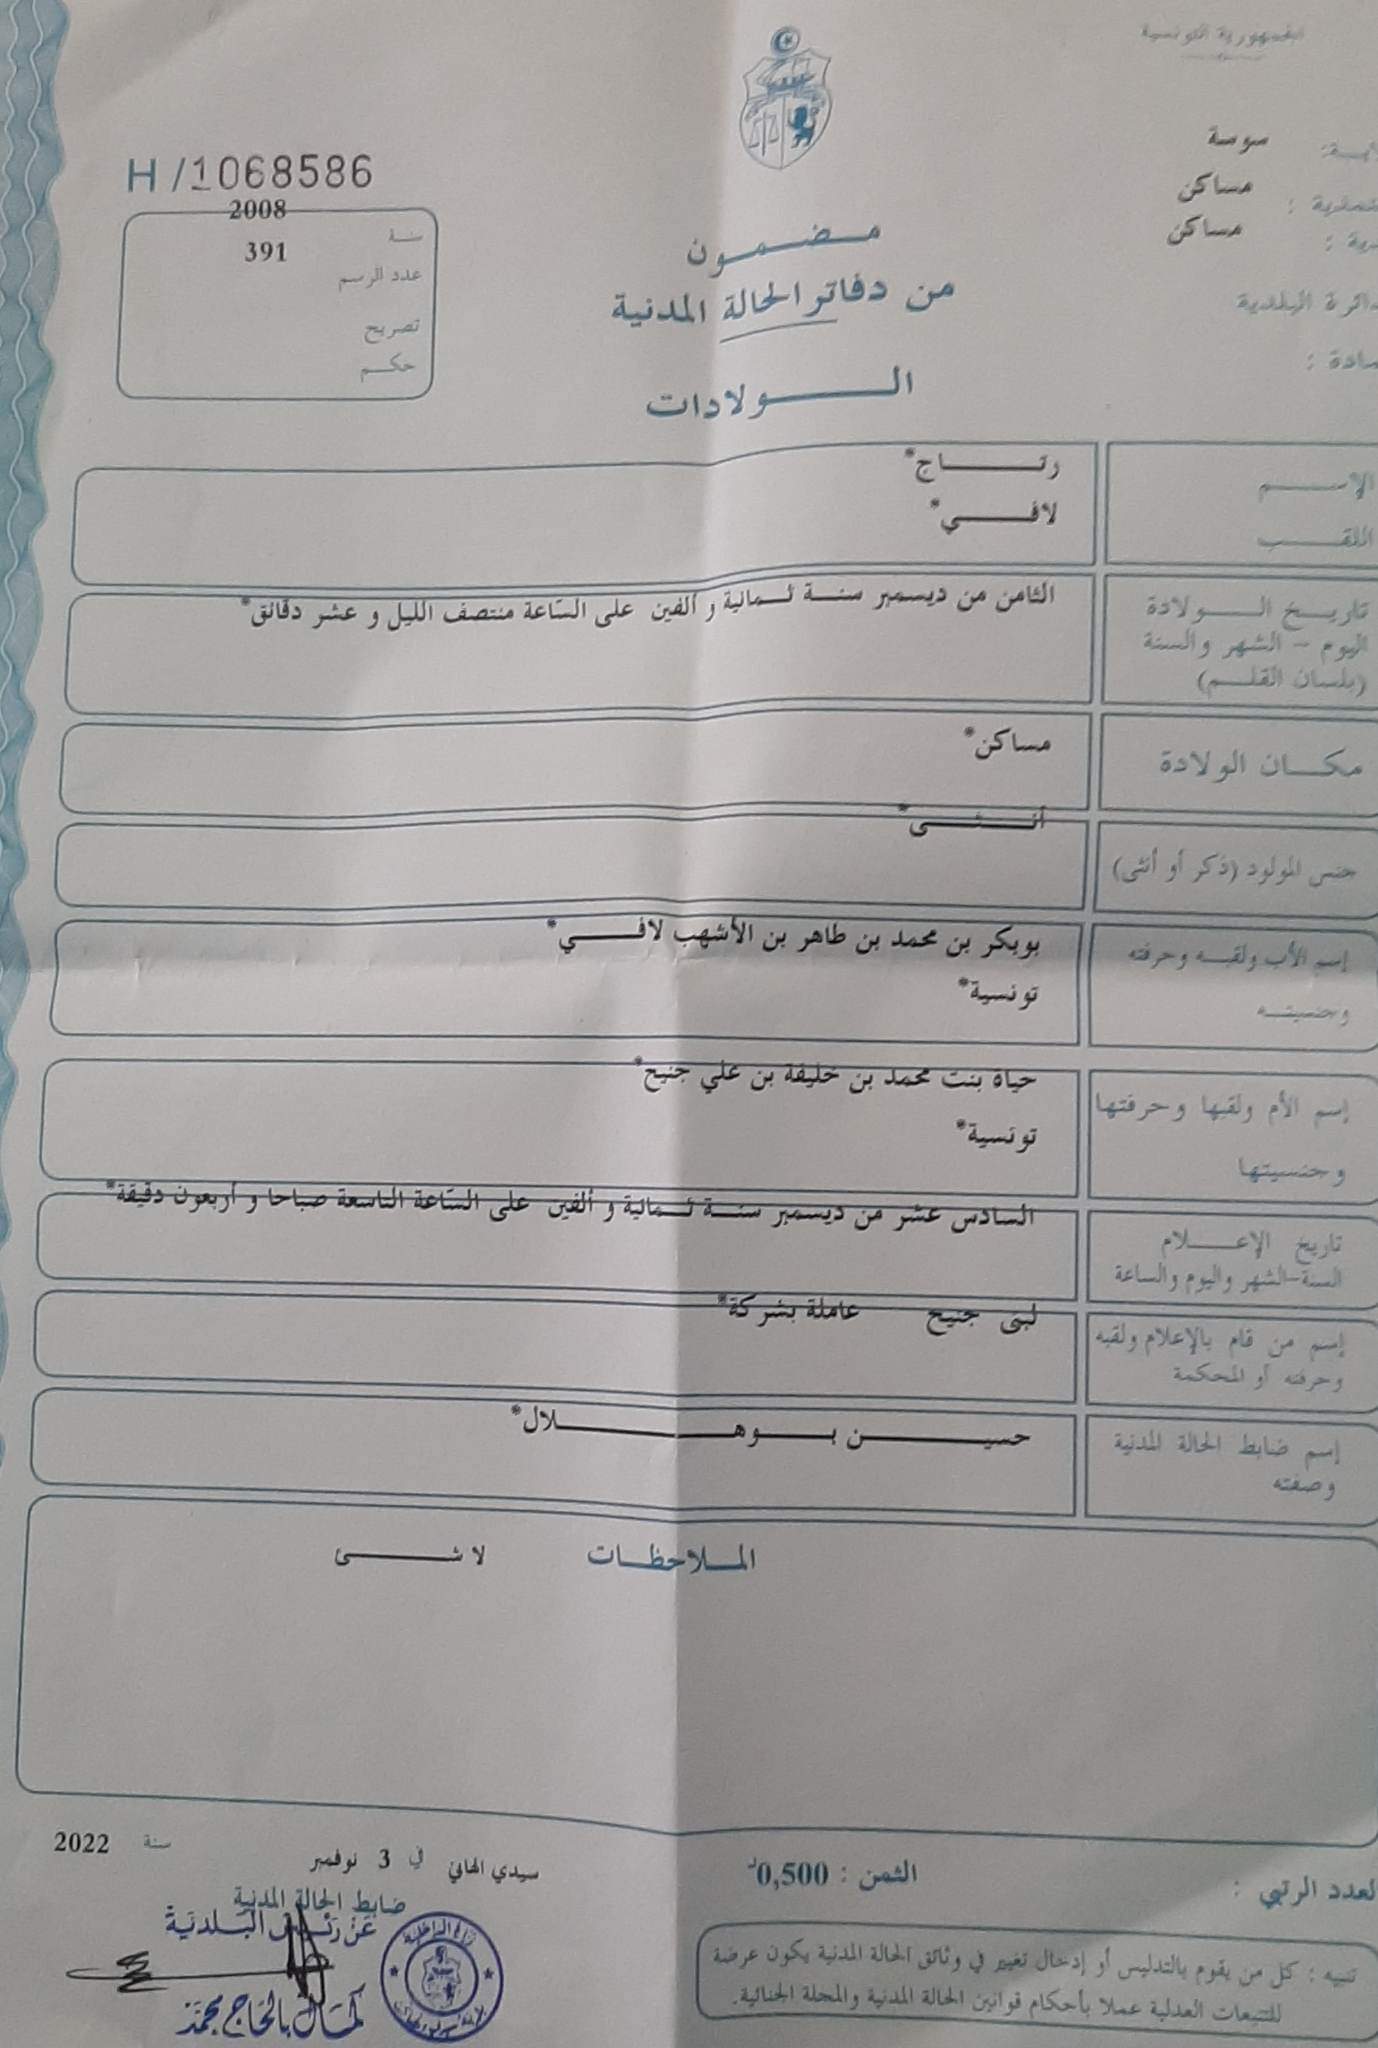 الجمهورية التونسية
سوسة
مساكن
مساكن
الدائرة البلدية
H/1068586
سنة 2008
عدد الرسم 391
تصريح
حكم
مضمون
من دفاتر الحالة المدنية
الولادات
الإسم رتاج*
اللقب لافي*
تاريخ الولادة الثامن من ديسمبر سنة ثمانية و ألفين على السّاعة منتصف الليل و عشر دقائق*
اليوم - الشهر والسنة
(بلسان القلم)
مكان الولادة مساكن*
جنس المولود (ذكر أو أنثى) أنثى*
إسم الأب ولقبه وحرفته بوبكر بن محمد بن طاهر بن الأشهب لافي*
وجنسيته تونسية*
إسم الأم ولقبها وحرفتها حياة بنت محمد بن خليفة بن علي جنيح*
وجنسيتها تونسية*
تاريخ الإعلام السادس عشر من ديسمبر سنة ثمانية و ألفين على السّاعة التاسعة صباحا و أربعون دقيقة*
السنة-الشهر واليوم والساعة
إسم من قام بالإعلام ولقبه لبنى جنيح عاملة بشركة*
وحرفته أو المحكمة
إسم ضابط الحالة المدنية حسين بوهلال*
وصفته
الملاحظات لا شئ
سيدي الهاني في 3 نوفمبر سنة 2022
ضابط الحالة المدنية
عن رئيس البلدية
كمال بالحاج محمد
العدد الرتبي :
الثمن : 0,500د
تنبيه : كل من يقوم بالتدليس أو إدخال تغيير في وثائق الحالة المدنية يكون عرضة
للتتبعات العدلية عملا بأحكام قوانين الحالة المدنية والمجلة الجنائية.